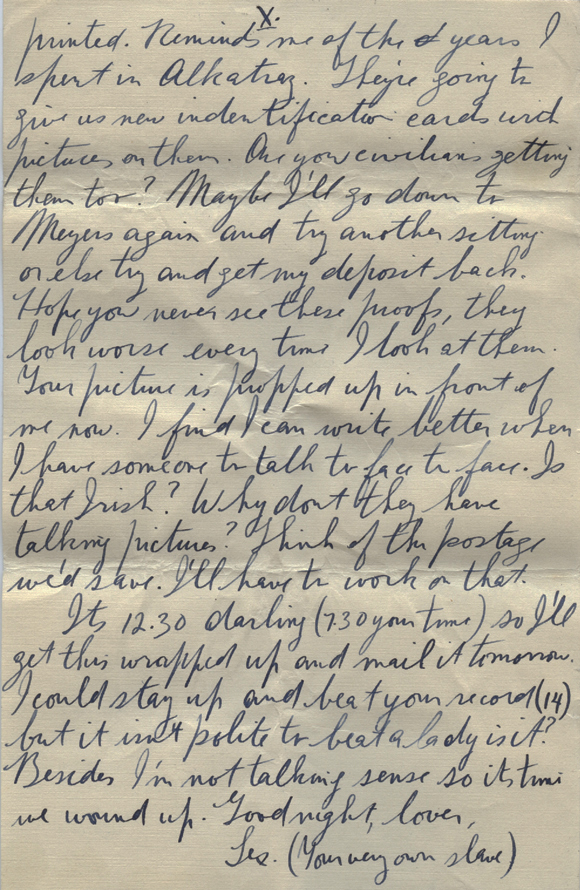 X.
printed. Reminds me of the years I
spent in Alkatraz. They're going to
give us new indentification cards with
pictures on them. Are you civilians getting
them too? Maybe I'll go down to
Meyers again and try another sitting
or else try and get my deposit back.
Hope you never see these proofs, they
look worse every time I look at them.
Your picture is propped up in front of
me now. I find I can write better when
I have someone to talk to face to face. Is
that Irish? Why dont they have
talking pictures? Think of the postage
we'd save. I'll have to work on that.
Its 12.30 darling (7.30 your time) so I'll
get this wrapped up and mail it tomorrow.
I could stay up and beat your record (14)
but it isn't polite to beat a lady is it?
Besides I'm not talking sense so its time
we wound up. Goodnight, lover,
Les. (Your very own slave)